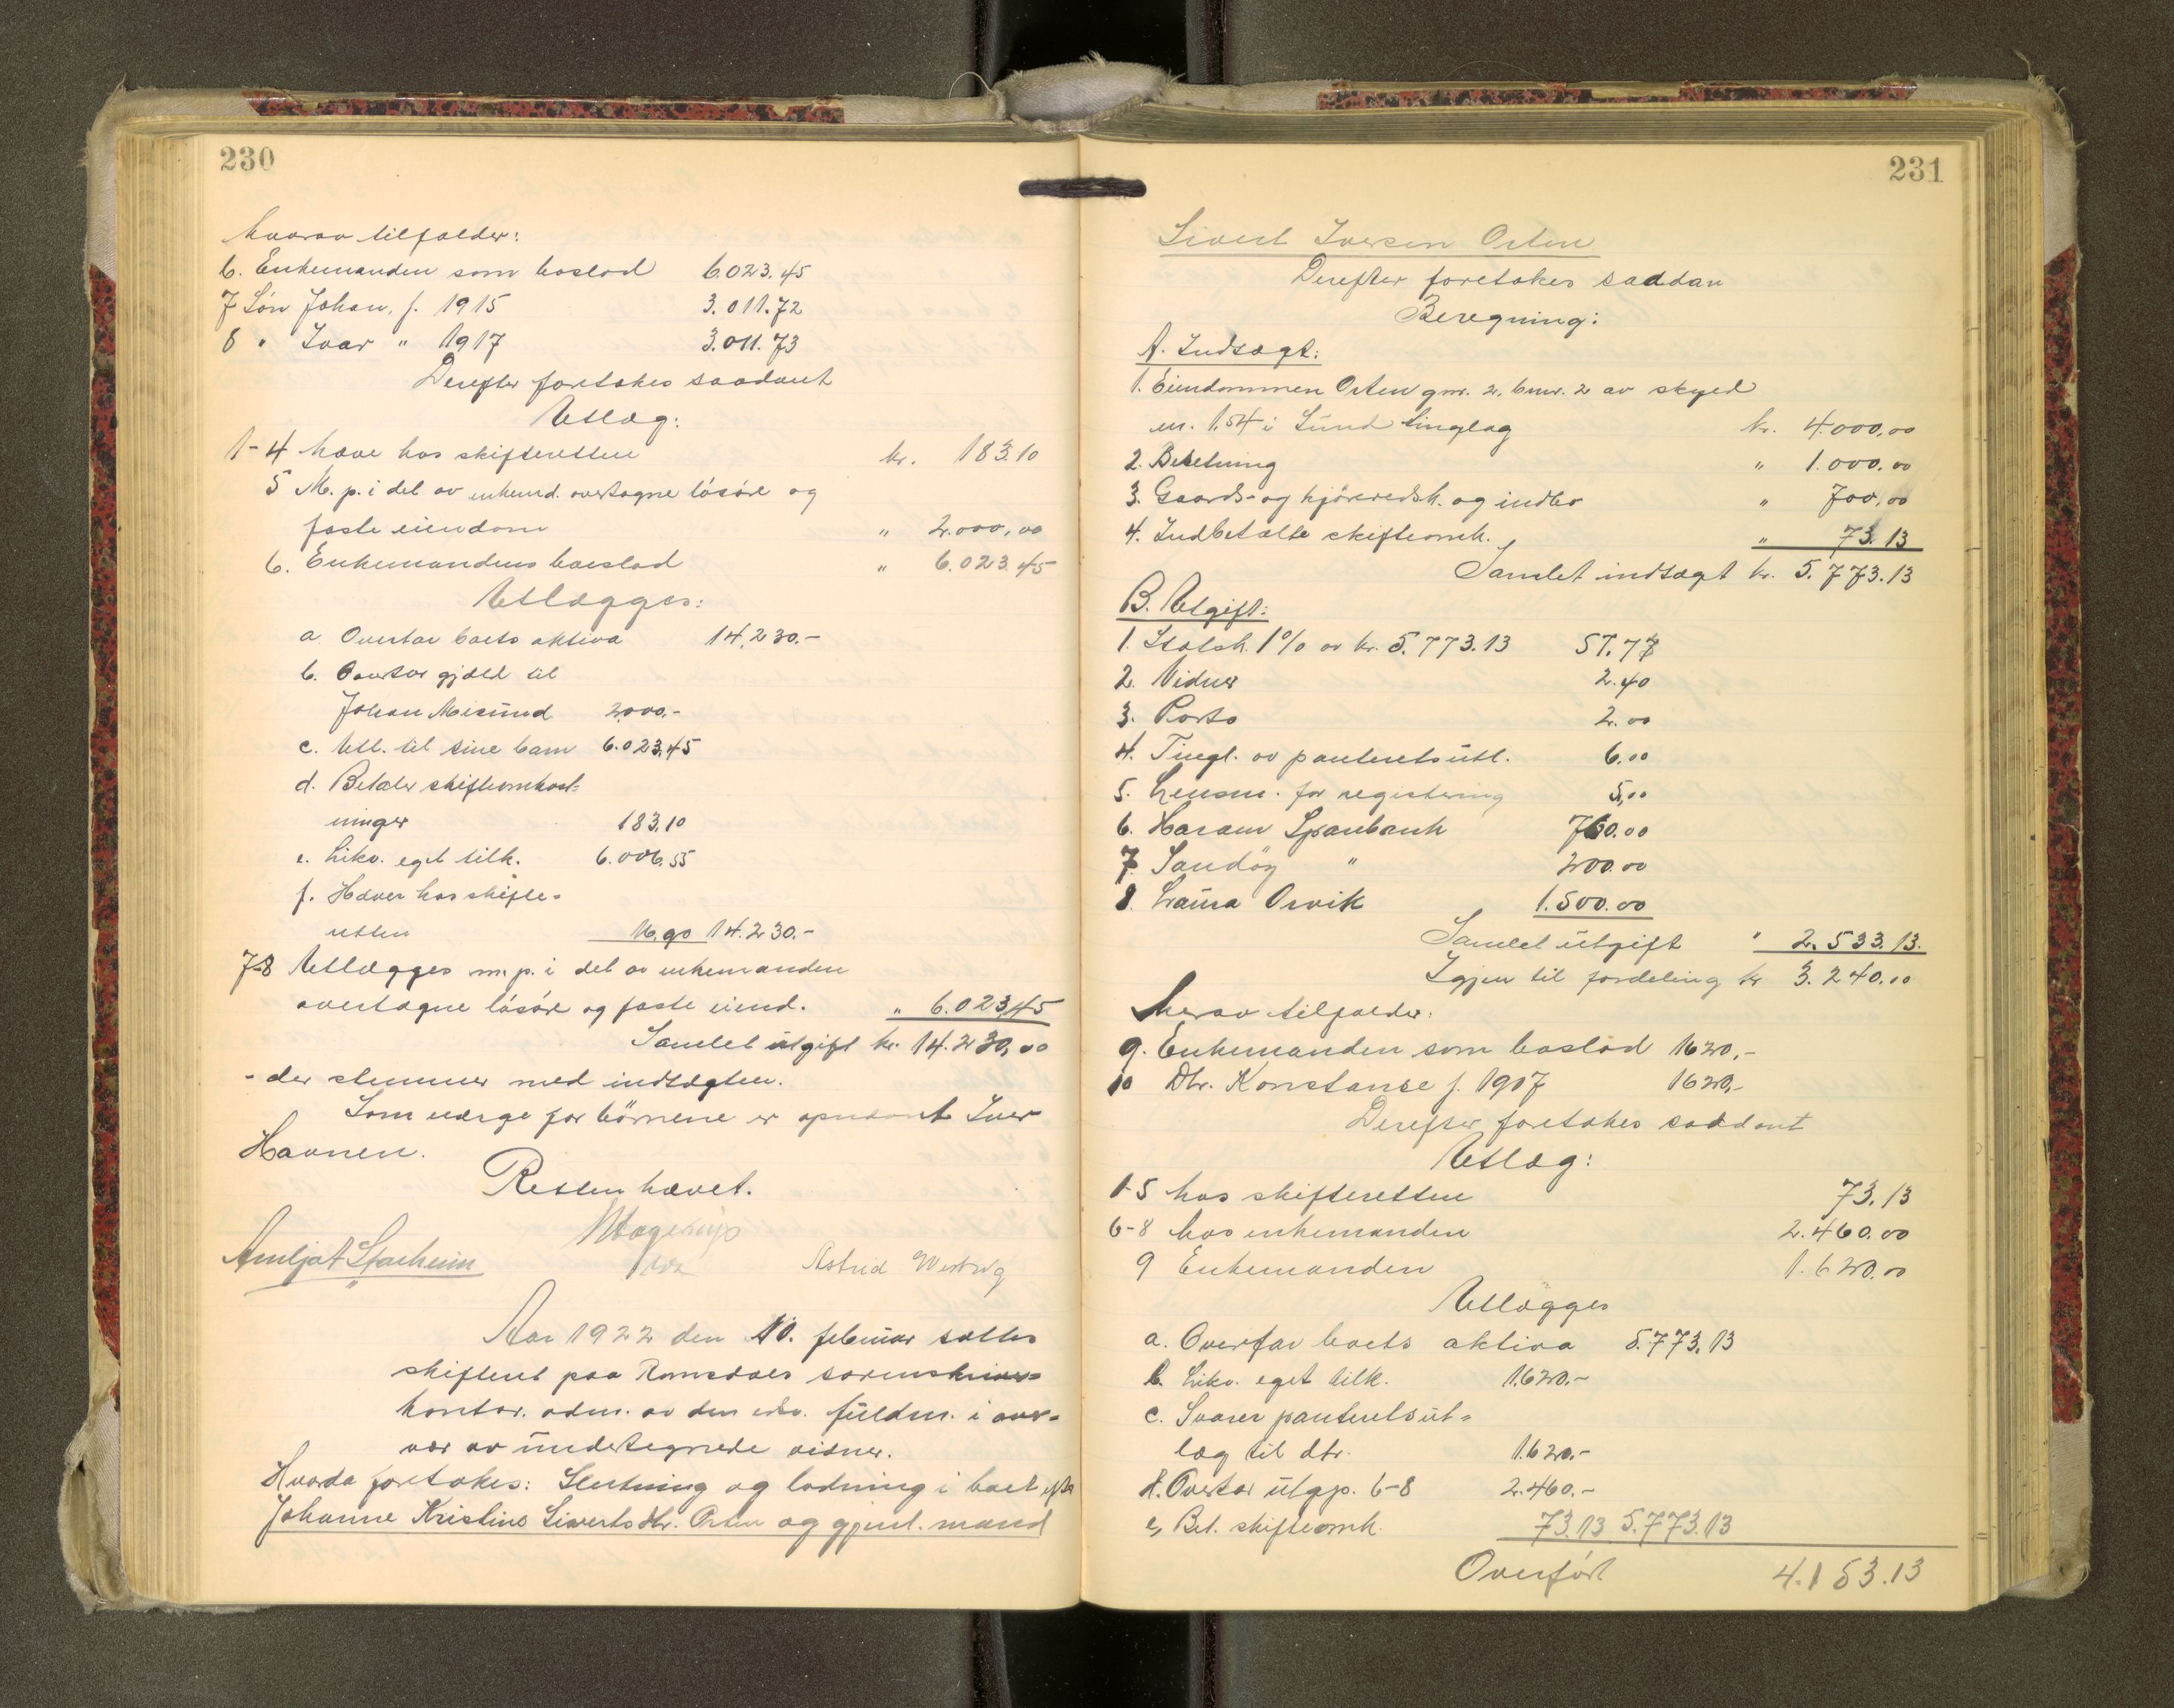 230
hvorav tilfalder:
6. Enkemanden som boslod 6.023.45
7 Søn Johan, f. 1915 3.011.72
8 " Ivar " 1917 3.011.73
Derefter foretokes saadant
Utlæg:
1-4 have hos skifteretten kr. 183.10
5 M. p. i det av enkemd. overtagne løsøre og
faste eiendom " 2.000,00
6. Enkemandens boeslod " 6.023.45
Utlægges:
a Overtar boets aktiva 14.230.-
b. Overtar gjæld til
Johan Misund 2000.-
c. Utl. til sine barn 6.023.45
d. Betaler skifteomkost-
ninger 183.10
e. Likv. eget tilk. 6.006.55
f. Hæver hos skifte-
retten 16.90 14.230.-
7-8 Utlægges m. p. i det av enkemanden
overtagne løsøre og faste eiend. " 6.023.45
Samlet utgift kr. 14.230,00
- der stemmer med indtægten.
Som værge for børnene er opnævnt Iver
Havnen.
Retten hævet.
Astrid
Aar 1922 den 10. februar sattes
skifteret paa Romsdals sorenskriver-
kontor. adm. av den edsv. fuldm. i over-
vær av undertegnede vidner.
Hvorda foretokes: Slutning og lodning i boet efter
Johanne Kristine Sivertsdtr. Orten og gjenl. mand
231
Sivert Iversen Orten
Derefter foretokes saadan
Beregning:
A. Indtægt:
1. Eiendommen Orten gnr. 2, bnr. 2 av skyld
m. 1.54 i Sund tinglag kr. 4.000,00
2. Besetning " 1.000.00
3. Gaards- og kjøreredsk. og indbo " 700,00
4. Indbetalte skifteomk. " 73.13
Samlet indtægt kr. 5.773.13
B. Utgift:
1. Statsk. 1% av kr. 5.773.13 57.73
2. Vidner 2.40
3. Porto 2.00
4. Tingl. av panteretsutl. 6.00
5. Lensm. for registering 5,00
6. Haram Sparebank 760.00
7 Sandøy " 200.00
8. Laura Orvik 1.500.00
Samlet utgift " 2.533.13.
Igjen til fordeling kr 3.240.00
herav tilfalder:
9. Enkemanden som boslod 1620.-
10 Dtr. Konstanse f. 1907 1620,-
Derefter foretokes saadant
Utlæg:
1-5 hos skifteretten 73.13
6-8 hos enkemanden 2.460.00
9 Enkemanden 1.620.00
Utlægges
a. Overtar boets aktiva 5.773.13
b. Likv. eget tilk. 1.620.-
c. Svarer panteretsut-
læg til dtr. 1.620.-
d. Overtar utgp. 6-8 2.460.-
e, Bet. skifteomk. 73.13 5.773.13
Overført 4.153.13